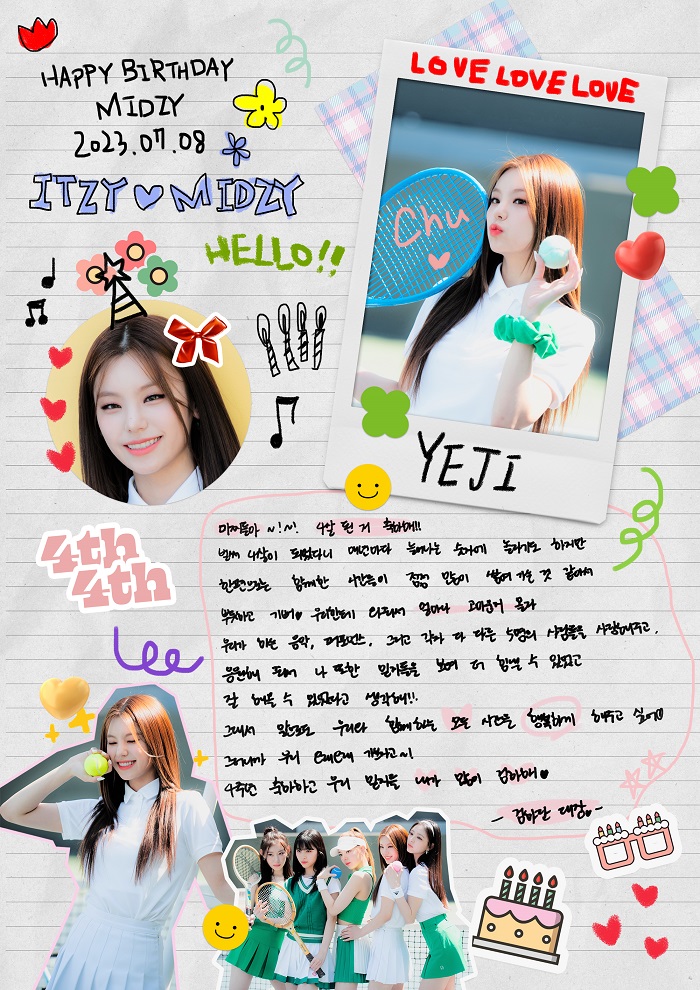 HAPPY BIRTHDAY
MIDZY
2023.07.08
ITZY ♡ MIDZY
HELLO!!
LOVE LOVE LOVE
Chu
YEJI
4th
4th
믿지들아 ~!~! 4살 된 거 축하해!!
벌써 4살이 되었다니 매년마다 늘어나는 숫자에 놀라기도 하지만
한편으로는 함께한 시간들이 점점 많이 쌓여 가는 것 같아서
뿌듯하고 기뻐♡ 우리한테 와줘서 얼마나 고마운지 몰라
우리가 하는 음악, 퍼포먼스, 그리고 각자 다 다른 5명의 사람들을 사랑해주고,
응원해 줘서 나 또한 믿지들을 보며 더 힘낼 수 있었고
잘 해올 수 있었다고 생각해!!
그래서 앞으로도 우리와 함께하는 모든 시간을 행복하게 해주고 싶어♡
그러니까 우리 오래오래 가보자고~!
4주년 축하하고 우리 믿지들 내가 많이 감사해♡